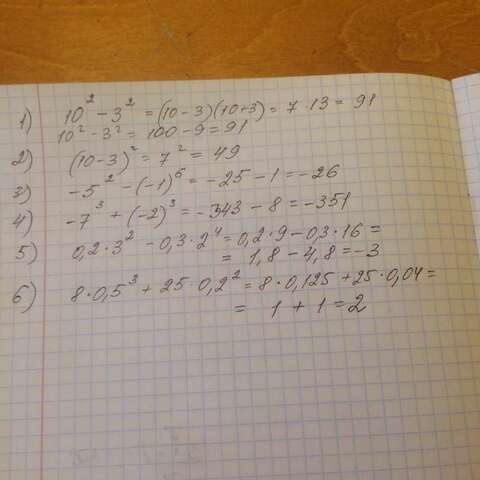 1) 10² - 3² = (10-3)(10+3) = 7·13 = 91
10² - 3² = 100 - 9 = 91
2) (10-3)² = 7² = 49
3) -5² - (-1)⁶ = -25 - 1 = -26
4) -7³ + (-2)³ = -343 - 8 = -351
5) 0,2·3² - 0,3·2⁴ = 0,2·9 - 0,3·16 =
= 1,8 - 4,8 = -3
6) 8·0,5³ + 25·0,2² = 8·0,125 + 25·0,04 =
= 1 + 1 = 2